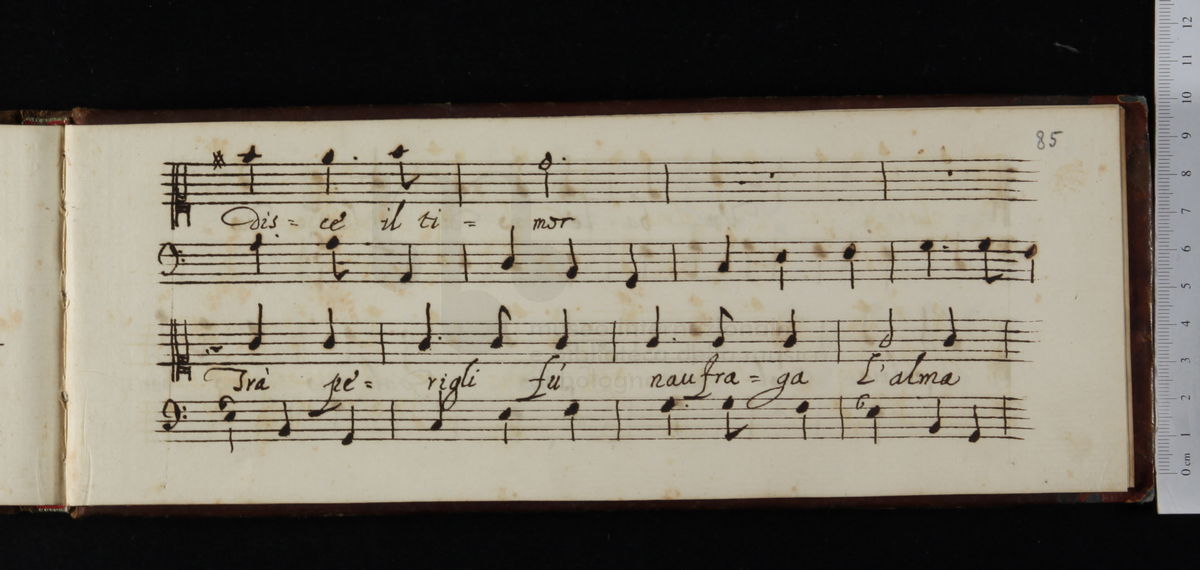 85
Dis = ce il ti = mor
Trà pe = rigli fù naufra = ga L'alma
6
12
11
10
9
8
7
6
5
4
3
2
1
0 cm